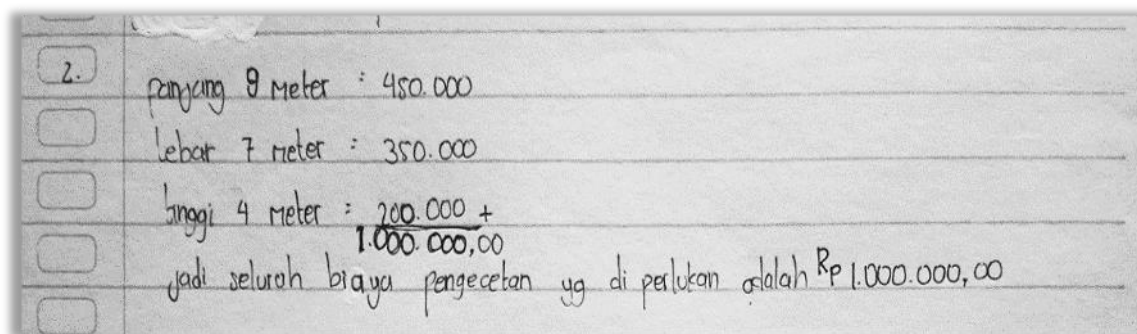 2.
panjang 9 Meter : 450.000
lebar 7 meter : 350.000
tinggi 4 meter : 200.000 +
1.000.000,00
jadi seluroh biaya pengecetan yg di perlukan adalah Rp 1.000.000,00